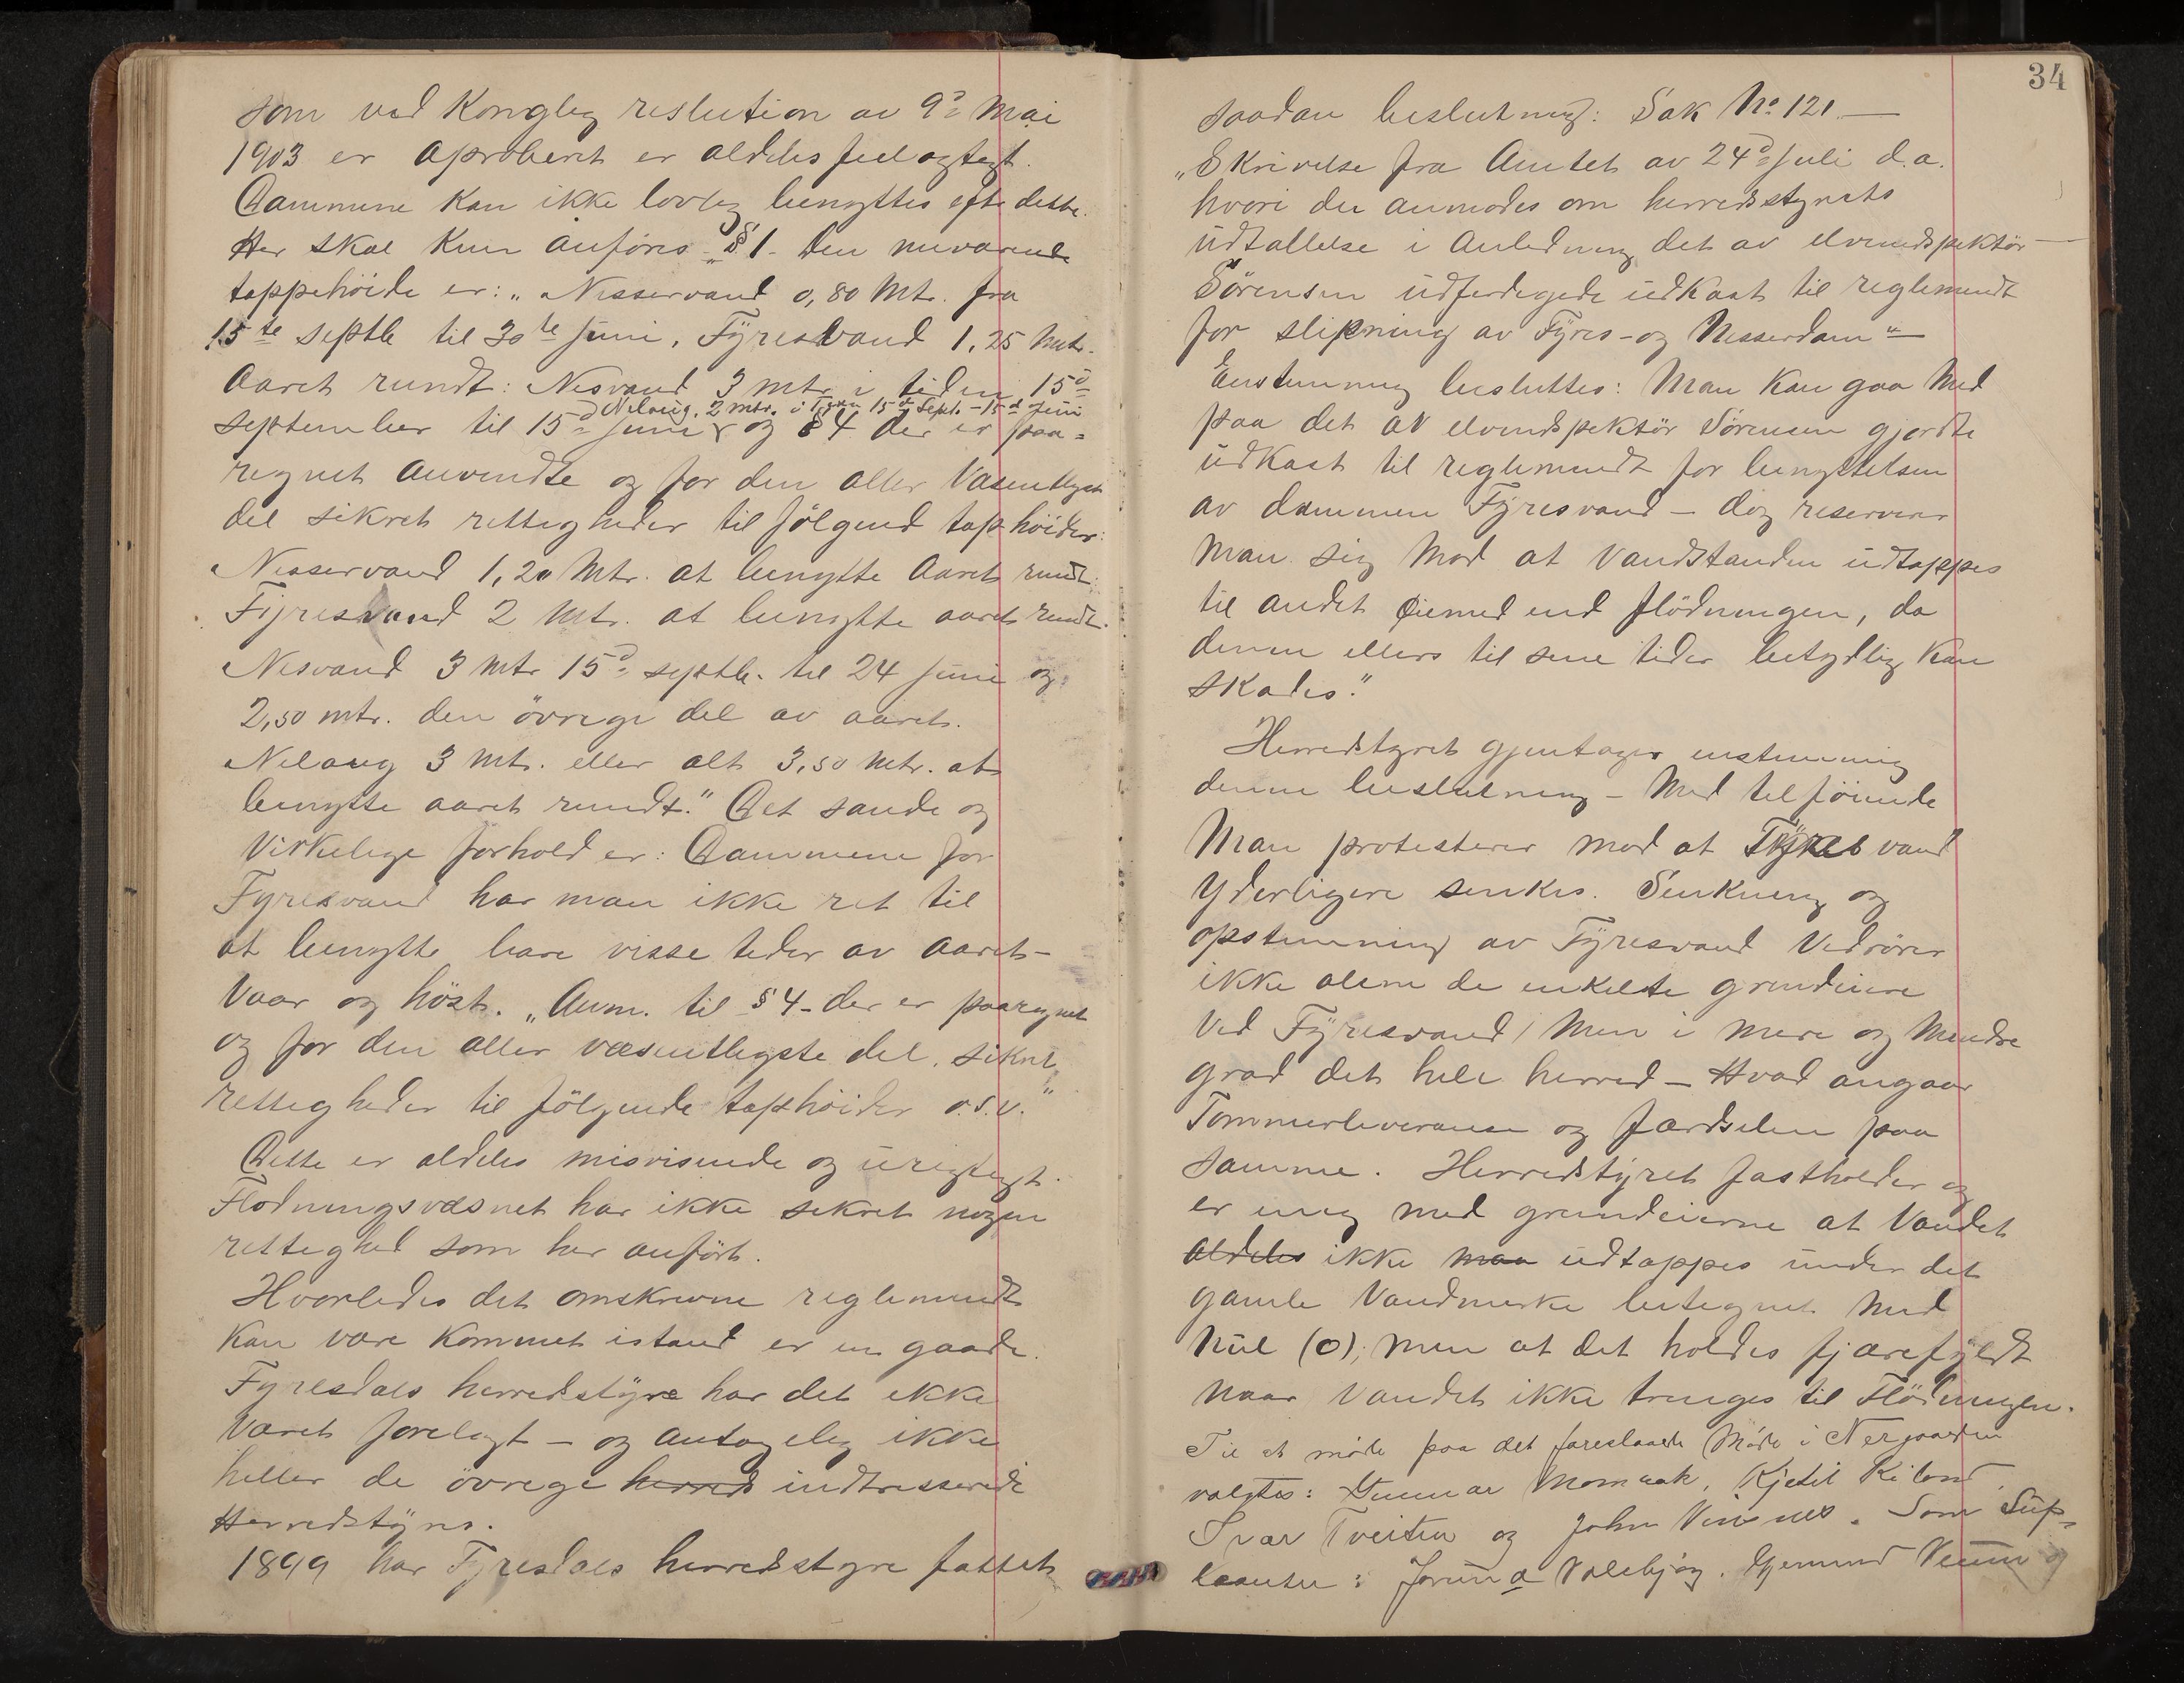 som ved Kongleg reslution av 9d Mai
1903 er Aproberet er aldeles feilagtigt.
Dammene kan ikke lovleg benyttes efte dette.
Her skal kun anføres „§ 1. Den nuværende
tappehöide er: „Nisservand 0,80 Mtr. fra
15te septbr til 30te juni, Fyresvand 1,25 Mtr.
Aaret rundt: Nisvand 3 mtr i tiden 15d
Nelaug. 2 mtr. i Tiden 15d Sept. - 15d juni
september til 15d juni og § 4 der er paa=
regnet Anvendte og for den aller Væsentligst
del sikret rettigheder til fölgend taphöider:
Nisservand 1,20 Mtr. at benytte Aaret rundt:
Fyresvand 2 Mtr. at benytte aaret rundt.
Nisvand 3 Mtr 15d septbr. til 24 juni og
2,50 mtr. den övrige del av aaret.
Nelaug 3 Mtr. eller alt 3,50 Mtr. at
benytte aaret rundt." Det sande og
Virkelige forhold er: Dammene for
Fyresvand har man ikke ret til
at benytte bare visse tider av Aaret -
Vaar og höst. „Anm. til § 4 - der er paaregnet
og for den aller væsentligste del, sikret
rettigheder til fölgende taphöider o.s.v."
Dette er aldeles misvisende og urigtigt.
Flodningsvæsnet har ikke sekret nogen
rettighed som her anfört.
Hvorledes det omskrevne reglement
kan være kommet istand er en gaade.
Fyresdals herredstyre har det ikke
været forelagt - og antagelig ikke
heller de övrege herreds indtresserede
Herredstyrer.
1899 har Fyresdals herredsstyre fattet
34
saadan beslutning: Sak No 121. —
„Skrivelse fra Amtet av 24d juli d.a.
hvori der anmodes om herredsstyrets
udtallelse i Anledning det av elvendspektör
Sörensen udferdegede udkast til reglemendt
for slipning av Fyres- og Nisserdam" —
Enstemmig besluttes: Man kan gaa med
paa det av elvendspektör Sörensen gjordte
udkast til reglemendt for benyttelsen
av dammen Fyresvand - dog reserverer
Man sig mod at Vandstanden udtappes
til andet Øiemed end flödningen, da
denne ellers til sine tider betydlig kan
skades."
Herredstyret gjentager enstemmig
denne beslutning - Med tilföiende
Man protesterer mod at Fyresvand
Yderligere senkes. Senkning og
opstemning av Fyresvand Vedrörer
ikke alene de enkelte grundeiere
Ved Fyresvand, Men i mere og Mendre
grad det hele herred - Hvad angaar
Tömmerleverance og færdselen paa
samme. Herredstyret fastholder og
er enig med grundeierne at Vandet
aldeles ikke maa udtappes under det
gamle Vandmerke betegnet Med
Nul (0); men at det holdes fjærefyldt
naar Vandet ikke trenges til Flödningen.
Til at möde paa det foreslaaede Möde i Nergaarden
valgtes: Gunnar Momrak, Kjetil Kiland,
Ivar Tveiten og John Vinsnes. Som Sup-
leanter: Jorund Valebjørg. Gjermund Veum og